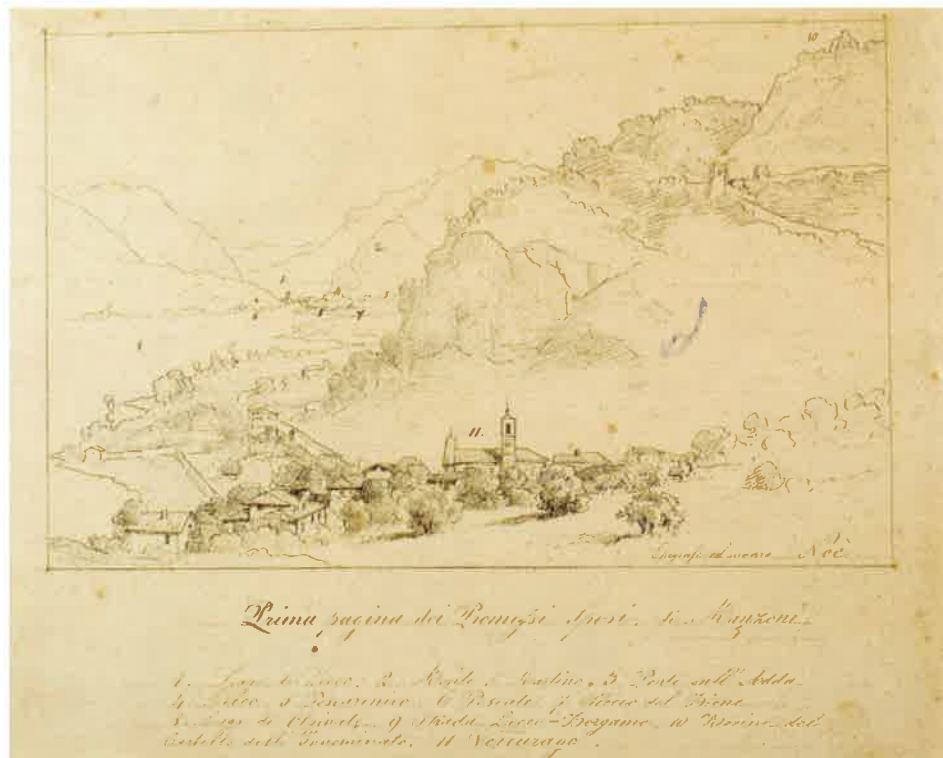 10
11.
Noè
Prima pagina dei Promessi Sposi di Manzoni.
1. Lago di Lecco. 2. Monte S. Martino. 3 Ponte sull'Adda
4. Lecco 5 Pescarenico 6 Pescate 7 Foce del Bione
8. Lago di Olginate. 9 Strada Lecco-Bergamo. 10 Rovine del
Castello dell'Innominato. 11 Vercurago.